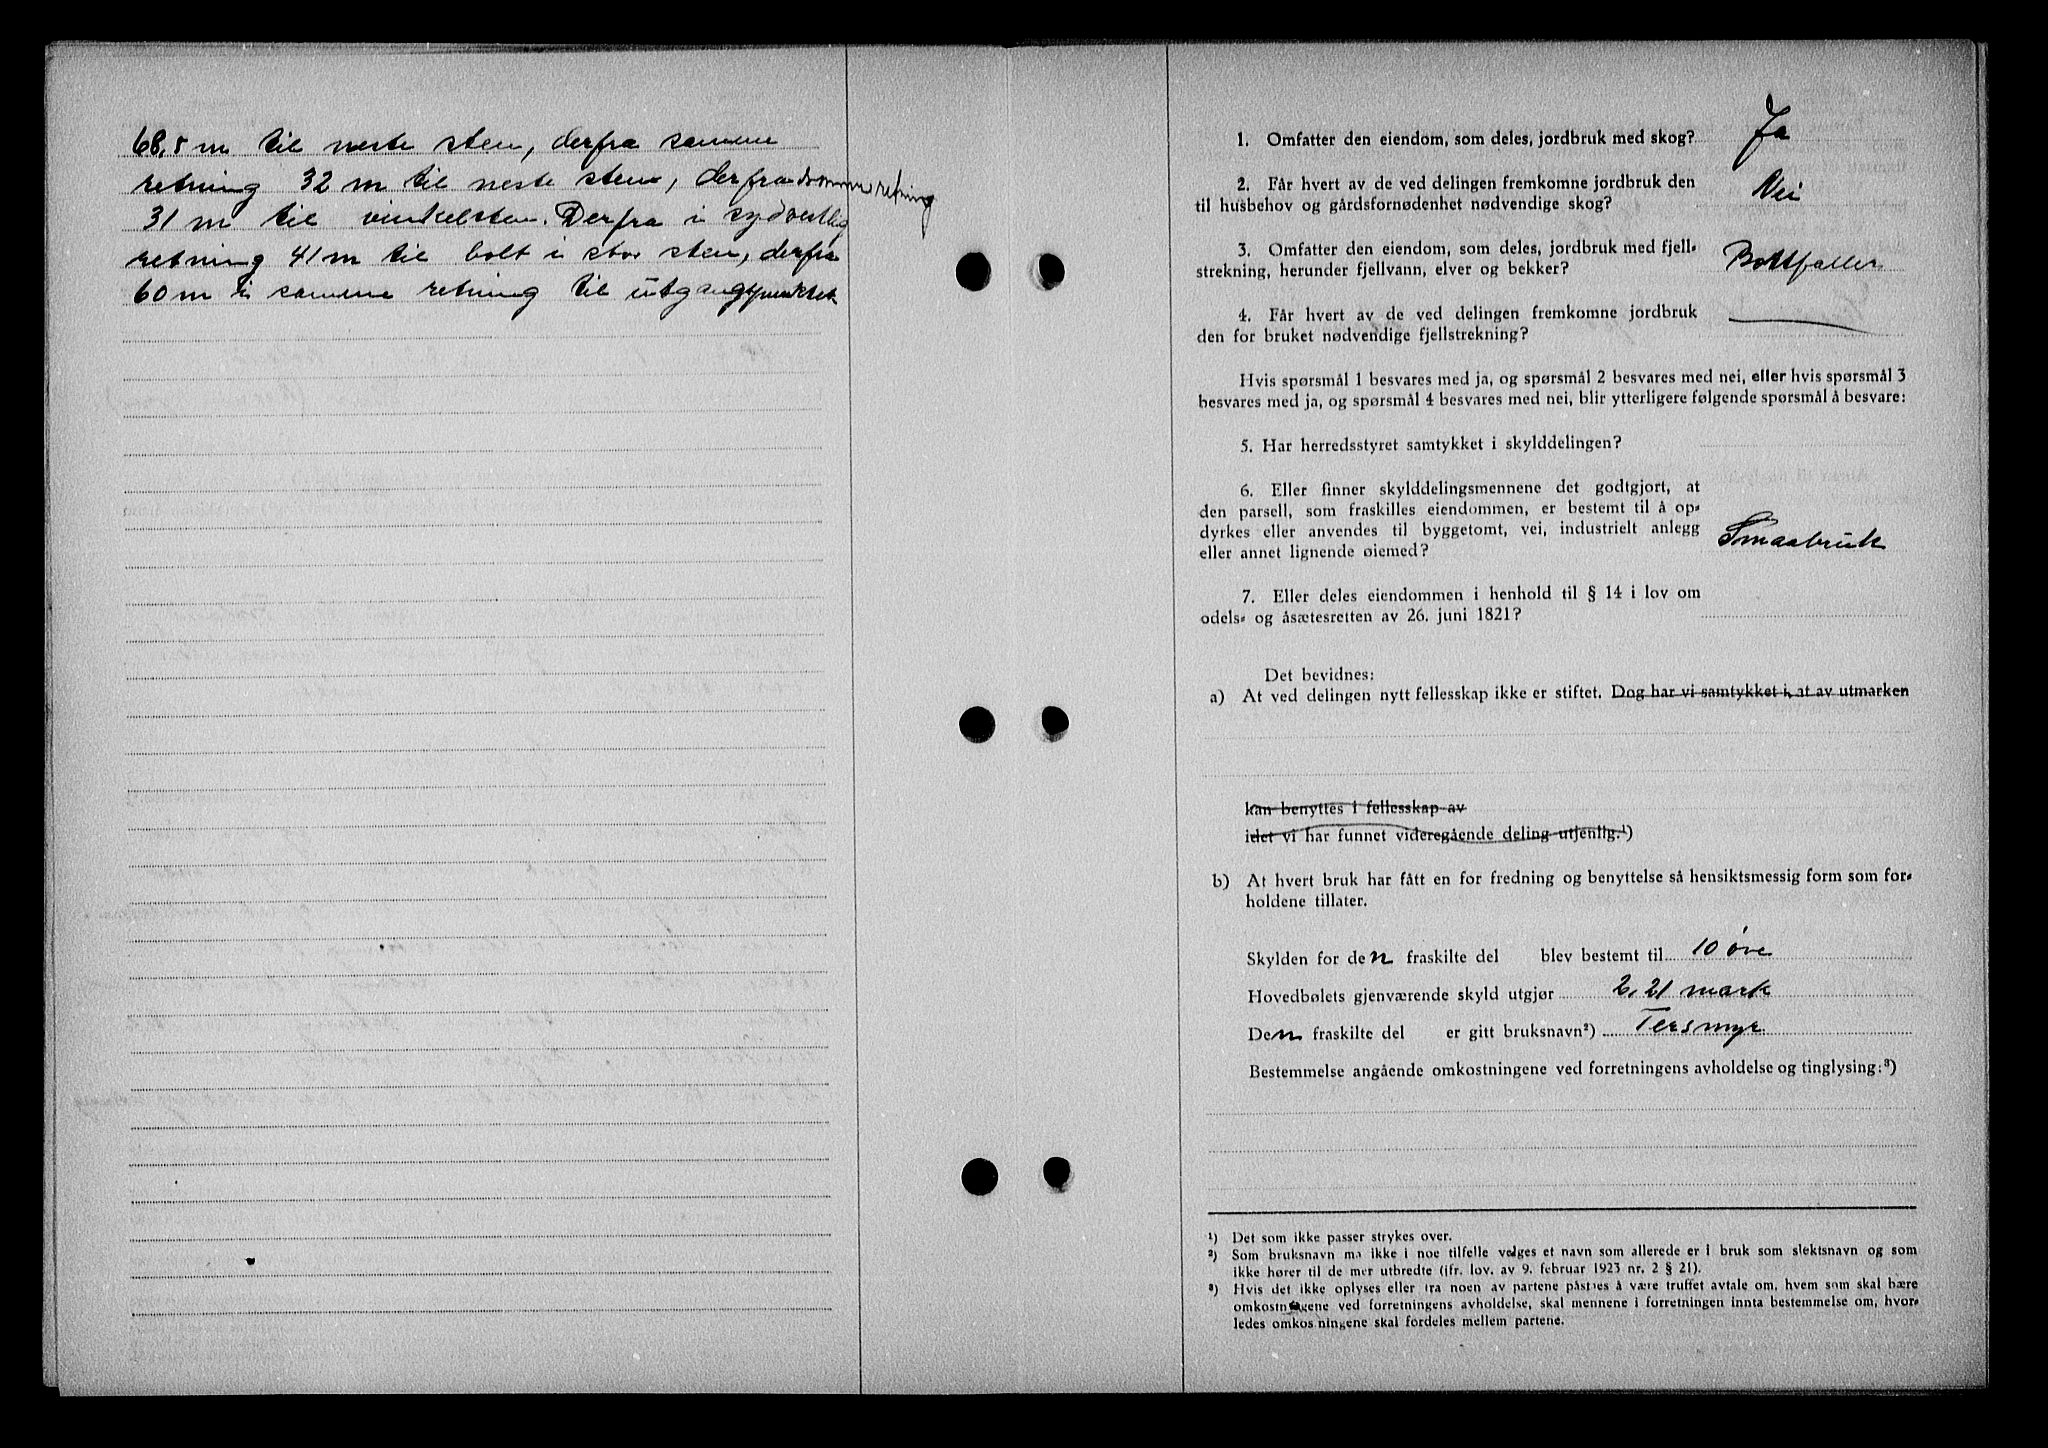 68,5 m til neste sten, derfra samme
retning 32 m til neste sten, derfra samme retning
31 m til vinkelsten. Derfra i sydvestlig
retning 41 m til bolt i stor sten, derfra
60 m i samme retning til utgangspunktet
1. Omfatter den eiendom, som deles, jordbruk med skog? Ja
2. Får hvert av de ved delingen fremkomne jordbruk den
til husbehov og gårdsfornødenhet nødvendige skog? Nei
3. Omfatter den eiendom, som deles, jordbruk med fjell-
strekning, herunder fjellvann, elver og bekker? Bortfaller
4. Får hvert av de ved delingen fremkomne jordbruk
den for bruket nødvendige fjellstrekning?
Hvis spørsmål 1 besvares med ja, og spørsmål 2 besvares med nei, eller hvis spørsmål 3
besvares med ja, og spørsmål 4 besvares med nei, blir ytterligere følgende spørsmål å besvare:
5. Har herredsstyret samtykket i skylddelingen?
6. Eller finner skylddelingsmennene det godtgjort, at
den parsell, som fraskilles eiendommen, er bestemt til å op-
dyrkes eller anvendes til byggetomt, vei, industrielt anlegg
eller annet lignende øiemed? Smaabruk
7. Eller deles eiendommen i henhold til § 14 i lov om
odels- og åsætesretten av 26. juni 1821?
Det bevidnes:
a) At ved delingen nytt fellesskap ikke er stiftet. Dog har vi samtykket i, at av utmarken
kan benyttes i fellesskap av
idet vi har funnet videregående deling utjenlig.¹)
b) At hvert bruk har fått en for fredning og benyttelse så hensiktsmessig form som for-
holdene tillater.
Skylden for den fraskilte del blev bestemt til 10 øre
Hovedbølets gjenværende skyld utgjør 2,21 mark
Den fraskilte del er gitt bruksnavn²) Tersmyr
Bestemmelse angående omkostningene ved forretningens avholdelse og tinglysing:³)
¹) Det som ikke passer strykes over.
²) Som bruksnavn ma ikke i noe tilfelle velges et navn som allerede er i bruk som slektsnavn og som
ikke hører til de mer utbredte (jfr. lov. av 9. februar 1923 nr. 2 § 21).
³) Hvis det ikke oplyses eller fra noen av partene påstås å være truffet avtale om, hvem som skal bære
omkostningene ved forretningens avholdelse, skal mennene i forretningen innta bestemmelse om, hvor-
ledes omkostningene skal fordeles mellem partene.